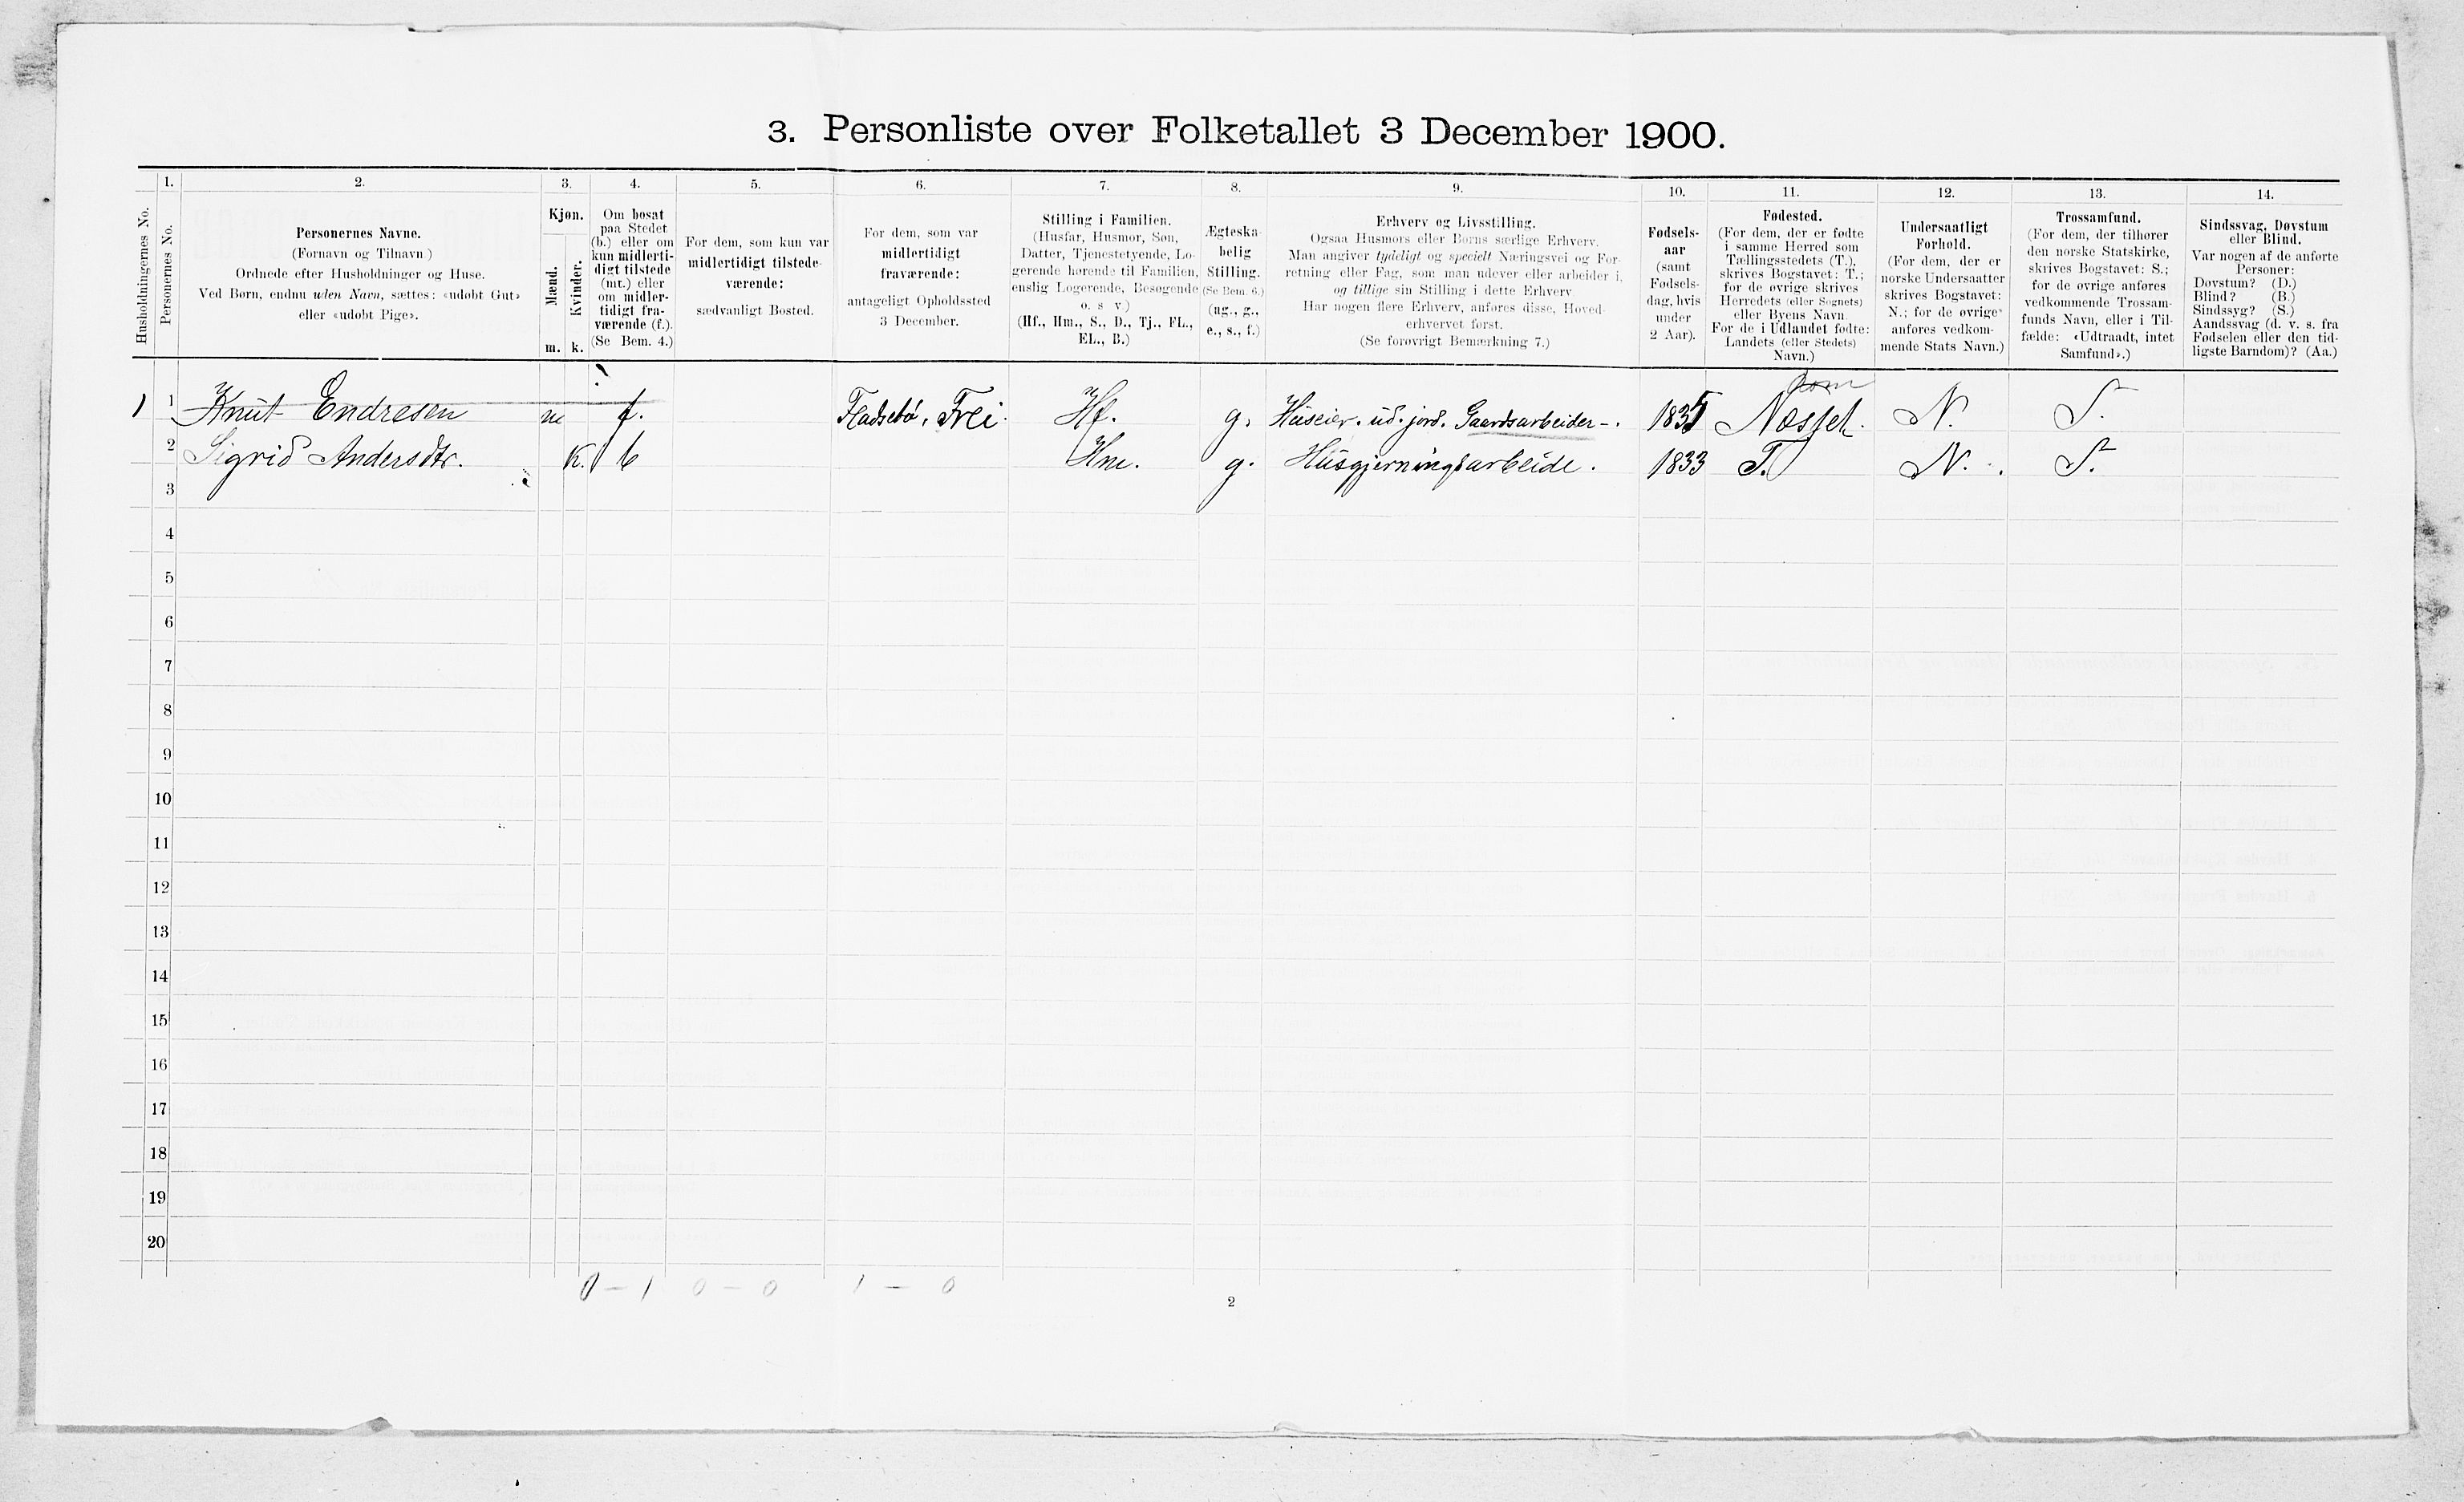 3. Personliste over Folketallet 3 December 1900.
Husholdningernes No.
1.
Personernes No.
2.
Personernes Navne.
(Fornavn og Tilnavn.)
Ordnede efter Husholdninger og Huse.
Ved Børn, endnu uden Navn, sættes: «udøbt Gut»
eller «udøbt Pige».
3.
Kjøn.
Mænd.
Kvinder.
m. k.
4.
Om bosat
paa Stedet
(b.) eller om
kun midlerti-
digt tilstede
(mt.) eller
om midler-
tidigt fra-
værende (f.).
(Se Bem. 4.)
5.
For dem, som kun var
midlertidigt tilstede-
værende:
sædvanligt Bosted.
6.
For dem, som var
midlertidigt
fraværende:
antageligt Opholdssted
3 December.
7.
Stilling i Familien.
(Husfar, Husmor, Søn,
Datter, Tjenestetyende, Lo-
gerende hørende til Familien,
enslig Logerende, Besøgende
o. s. v.)
(Hf., Hm., S., D., Tj., FL.,
EL., B.)
8.
Ægteska-
belig
Stilling.
(Se Bem. 6.)
(ug., g.,
e., s., f.)
9.
Erhverv og Livsstilling.
Ogsaa Husmors eller Børns særlige Erhverv.
Man angiver tydeligt og specielt Næringsvei og For-
retning eller Fag, som man udøver eller arbeider i,
og tillige sin Stilling i dette Erhverv
Har nogen flere Erhverv, anføres disse, Hoved-
erhvervet først.
(Se forøvrigt Bemærkning 7.)
10.
Fødsels-
aar
(samt
Fødsels-
dag, hvis
under
2 Aar).
11.
Fødested.
(For dem, der er fødte
i samme Herred som
Tællingsstedets (T.),
skrives Bogstavet: T.;
for de øvrige skrives
Herredets (eller Sognets)
eller Byens Navn.
For de i Udlandet fødte:
Landets (eller Stedets)
Navn.)
12.
Undersaatligt
Forhold.
(For dem, der er
norske Undersaatter
skrives Bogstavet:
N.; for de øvrige
anføres vedkom-
mende Stats Navn.)
13.
Trossamfund.
(For dem, der tilhører
den norske Statskirke,
skrives Bogstavet: S.;
for de øvrige anføres
vedkommende Trossam-
funds Navn, eller i Til-
fælde: «Udtraadt, intet
Samfund».)
14.
Sindssvag, Døvstum
eller Blind.
Var nogen af de anførte
Personer:
Døvstum? (D.)
Blind? (B.)
Sindssyg? (S.)
Aandssvag (d. v. s. fra
Fødselen eller den tid-
ligste Barndom)? (Aa.)
1 1 Knut Endresen m f. Fladsetø, Frei. Hf. g. Huseier. ud. jord. Gaardsarbeider-. 1835 Næsset. N. S.
2 Sigrid Andersdtr. k. b Hm. g. Husgjerningsarbeide. 1833 T. N. S.
3
4
5
6
7
8
9
10
11
12
13
14
15
16
17
18
19
20
0 – 1 0 – 0 1 – 0
2